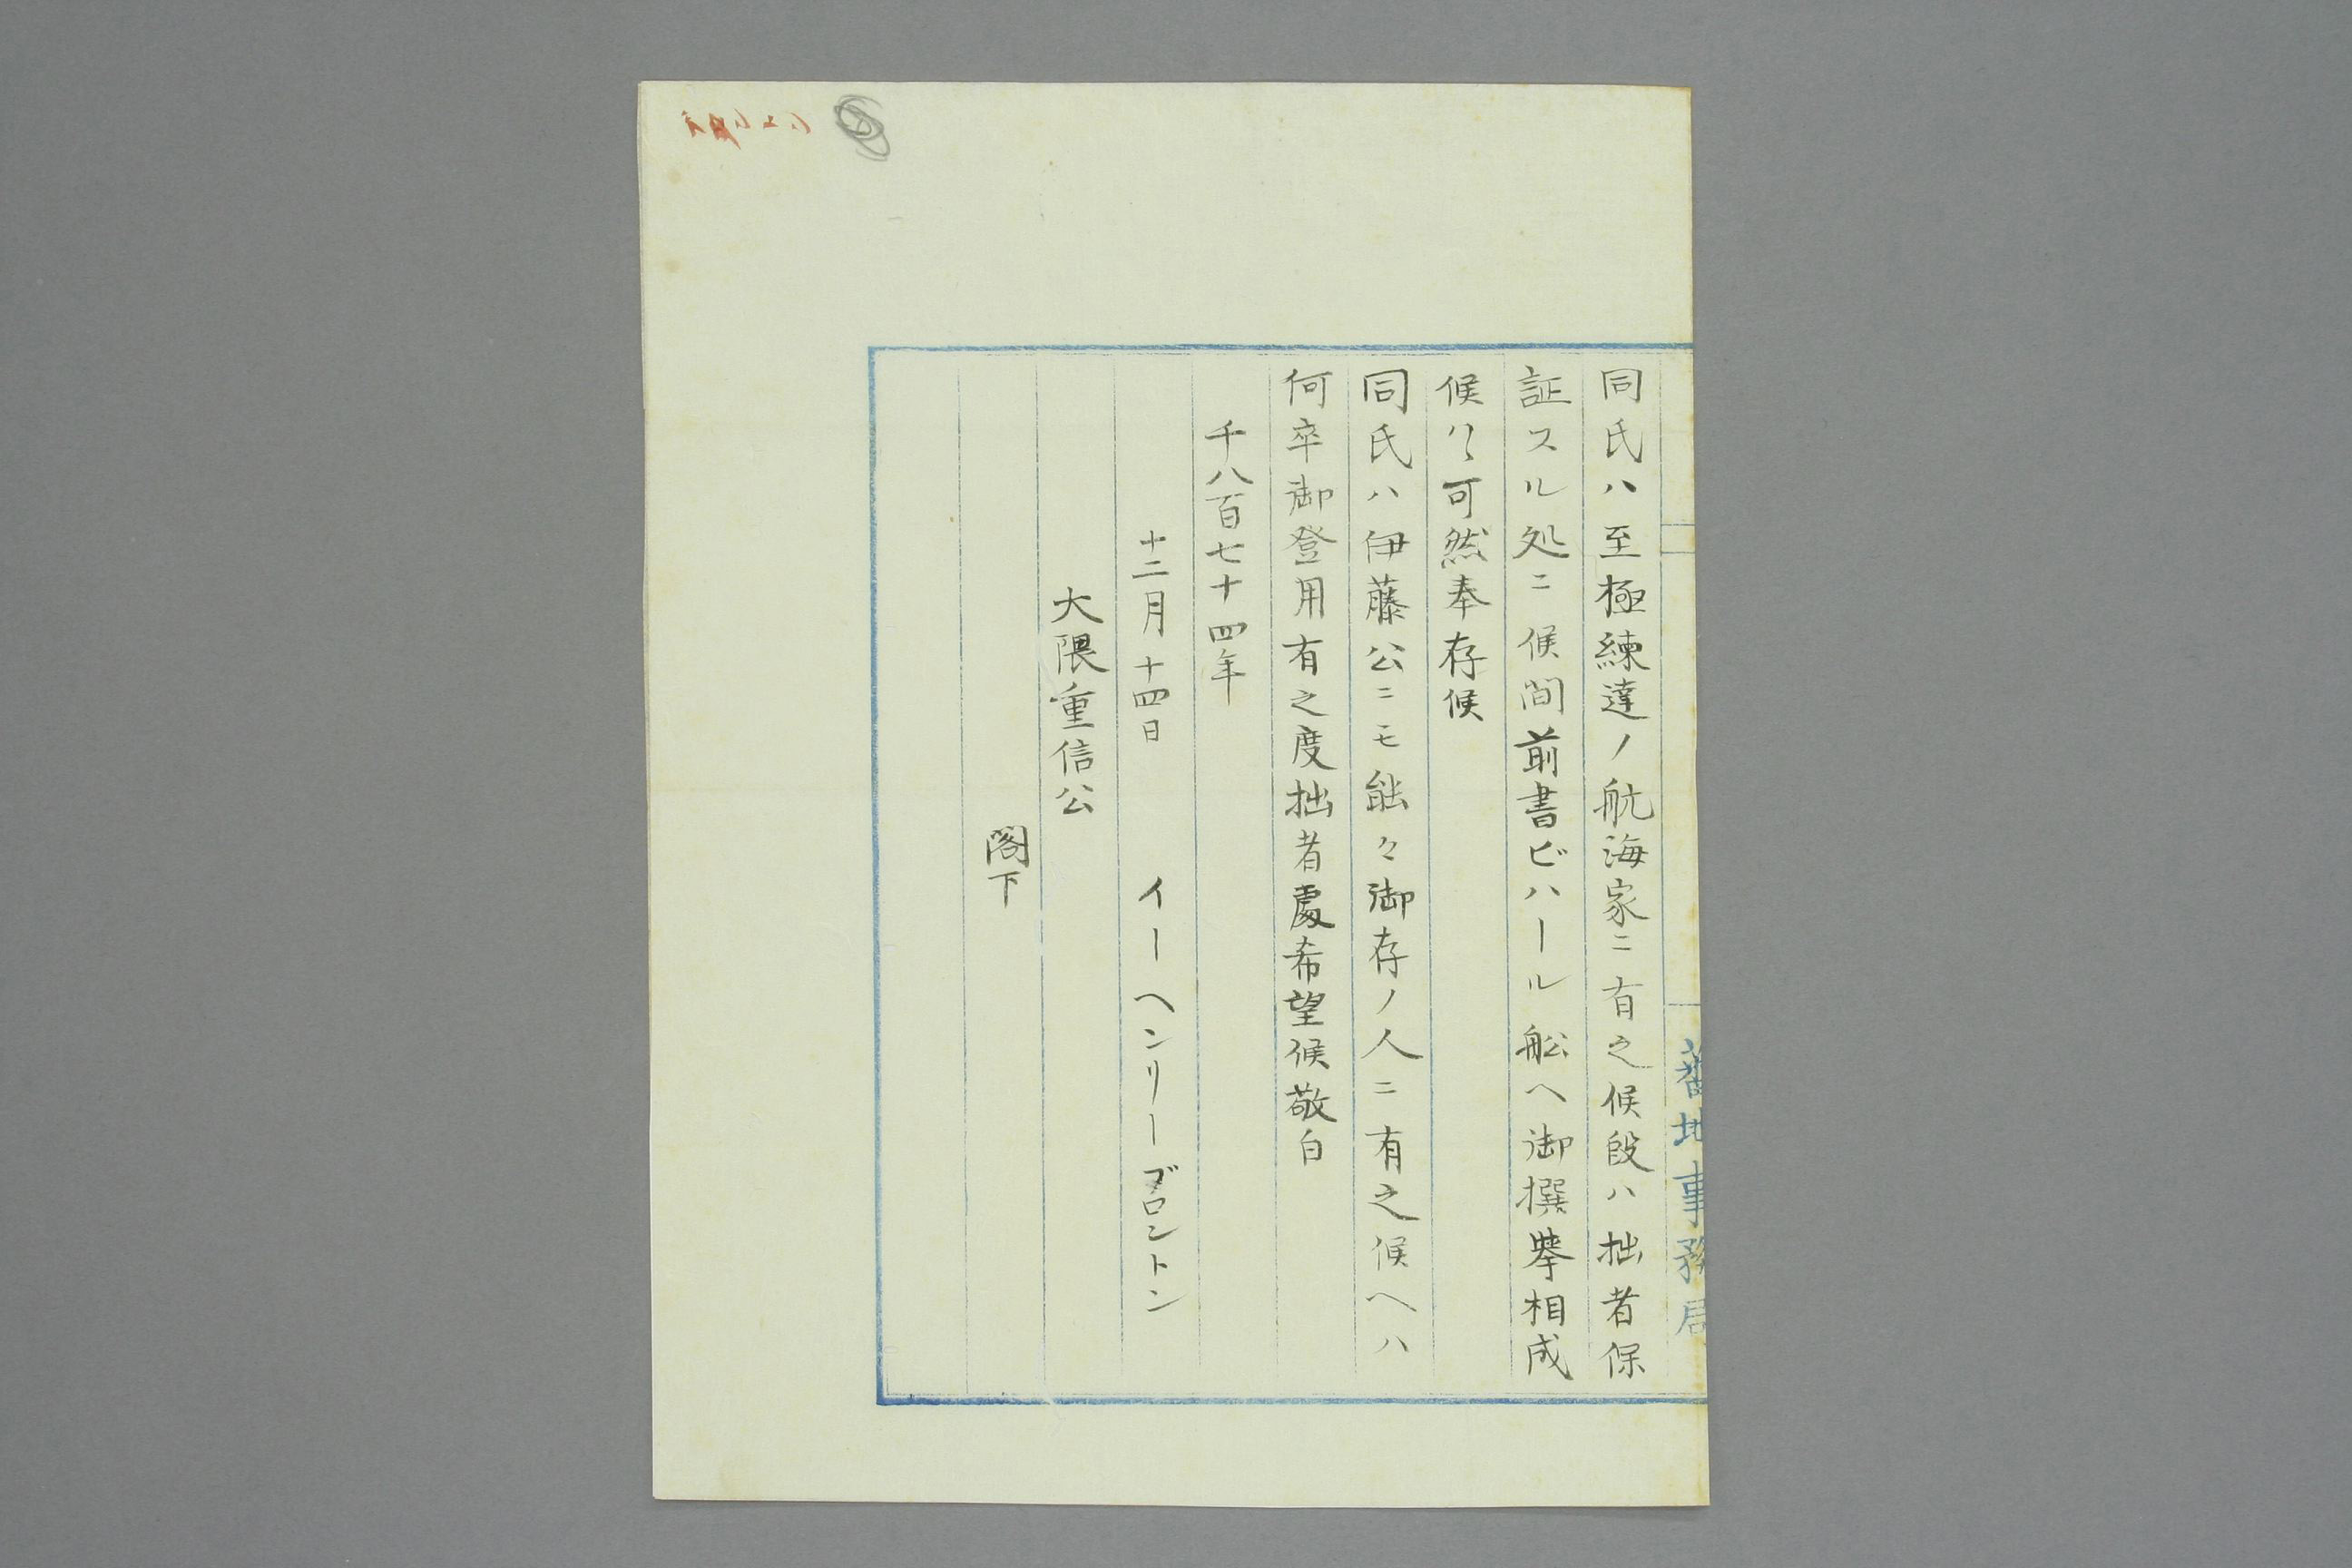 蕃地事務局
同氏ハ至極練達ノ航海家ニ有之候段ハ拙者保
証スル処ニ候間前書ビハール舩ヘ御撰挙相成
候ハヽ可然奉存候
同氏ハ伊藤公ニモ能々御存ノ人ニ有之候ヘハ
何卒御登用有之度拙者處希望候敬白
千八百七十四年
十二月十四日 イーヘンリーブロントン
大隈重信公
閣下